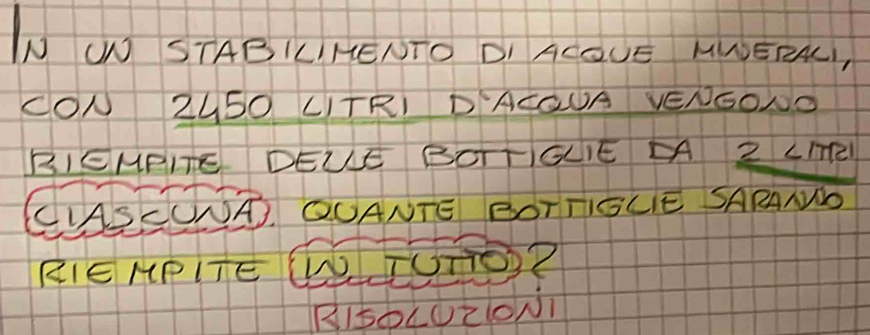 IN UN STABILIMENTO DI ACQUE MINERALI,
CON 2450 LITRI D'ACQUA VENGONO
RIEMPITE DELLE BOTTIGLIE DA 2 LITRI
CIASCUNA. QUANTE BOTTIGLIE SARANNO
RIEMPITE IN TUTTO?
RISOLUZIONI